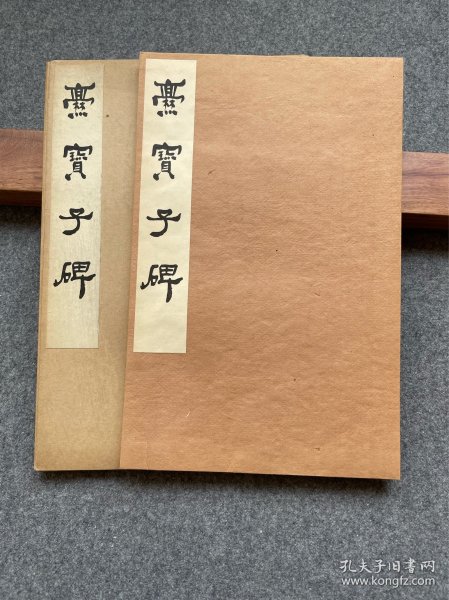 爨寶子碑
爨寶子碑
孔夫子旧書网
www.kongfz.com